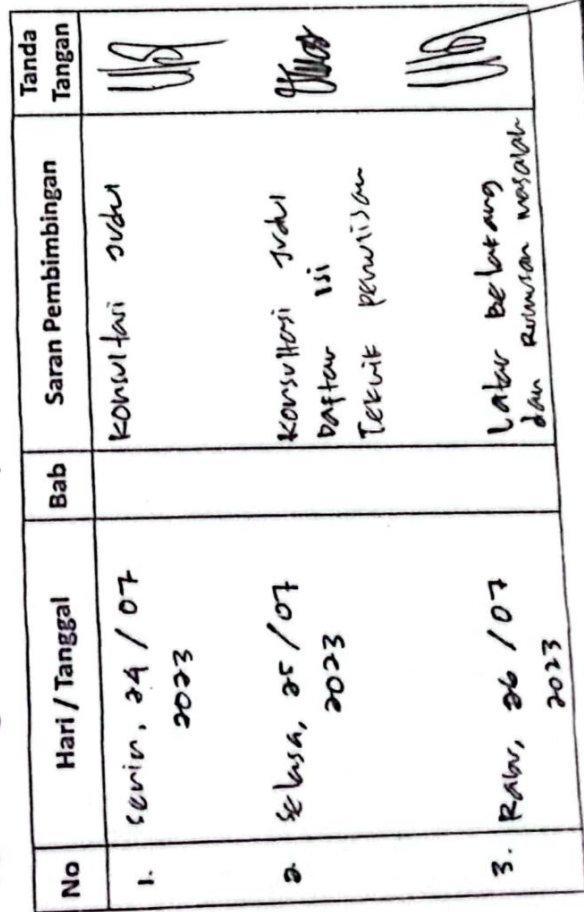 No Hari / Tanggal Bab Saran Pembimbingan Tanda Tangan
1. Senin, 24 / 07 2023 Konsultasi Judul
2. Selasa, 25 / 07 2023 Konsultasi Judul
Daftar Isi
Teknik penulisan
3. Rabu, 26 / 07 2023 Latar Belakang
dan Rumusan masalah